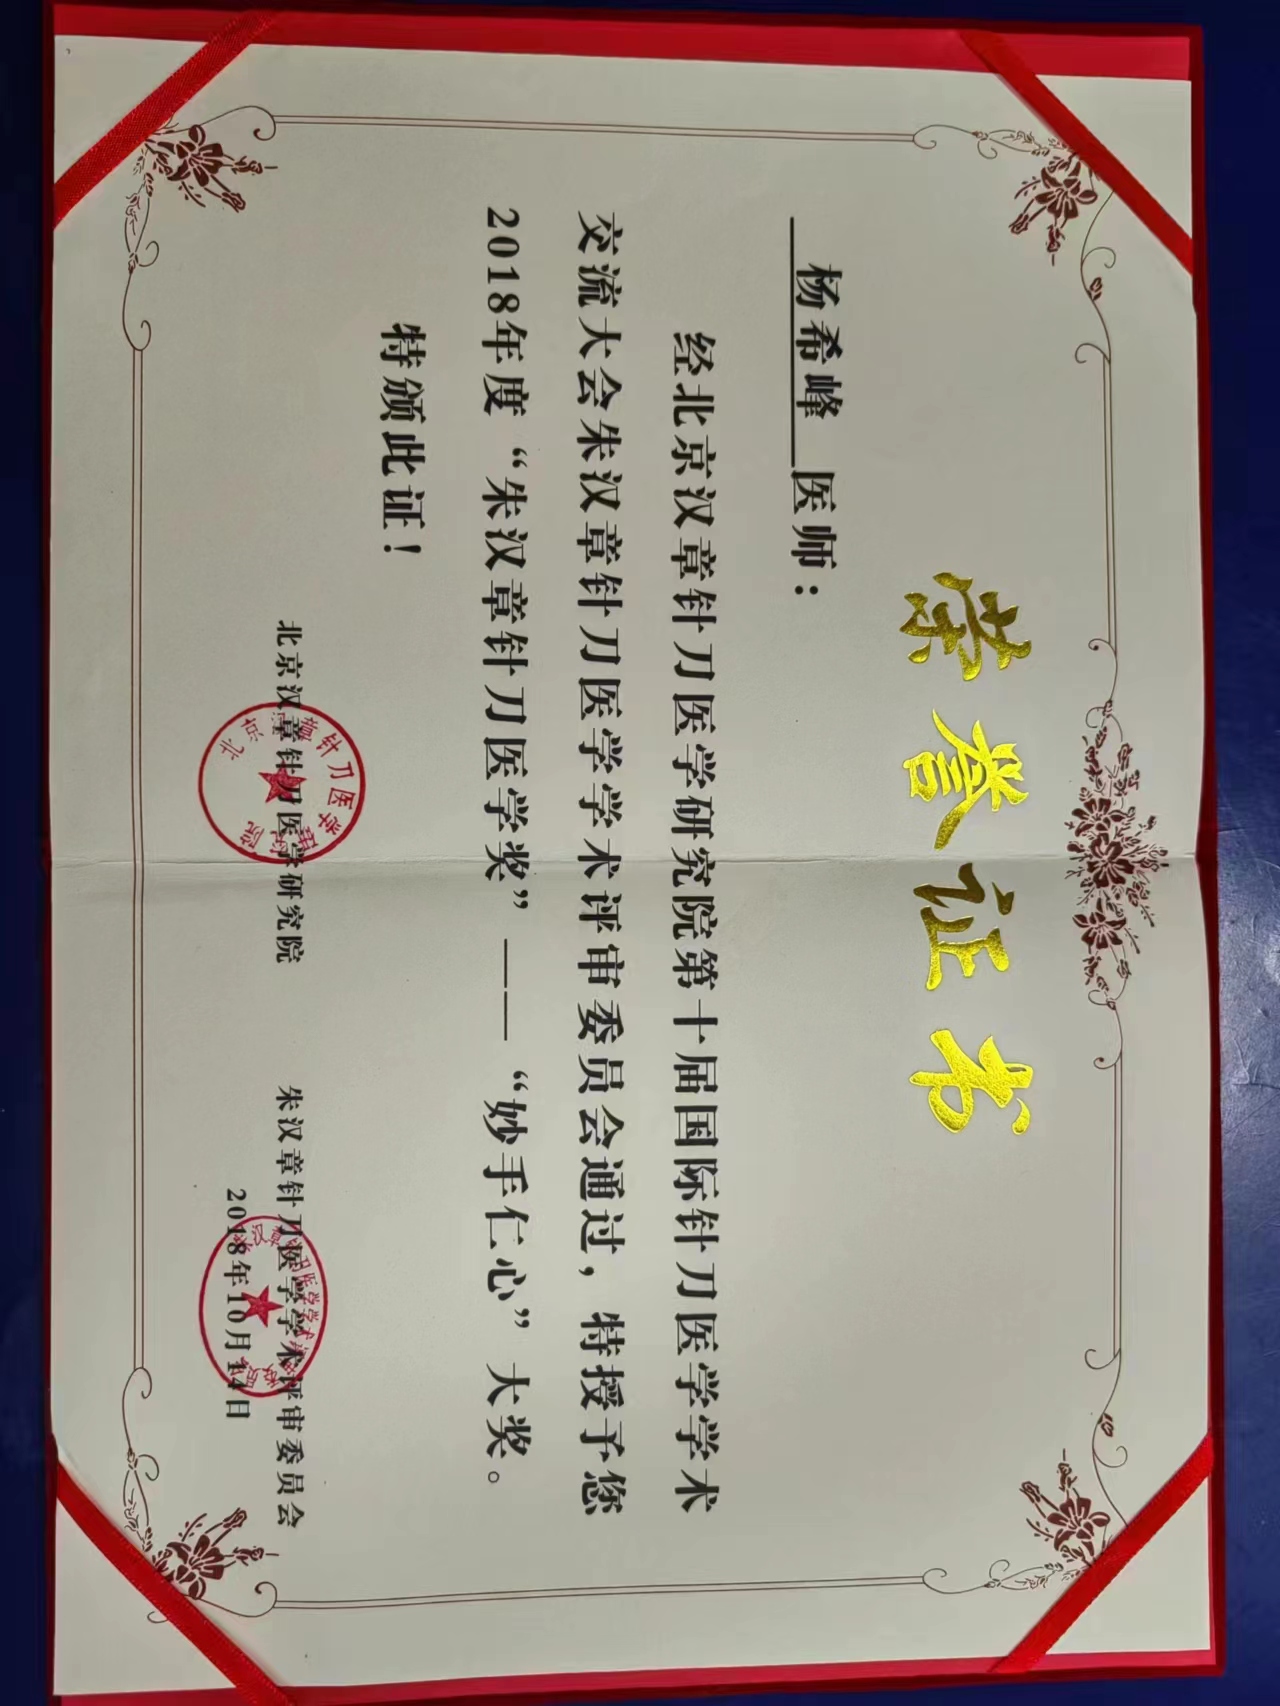 荣誉证书
杨希峰 医师：
经北京汉章针刀医学研究院第十届国际针刀医学学术
交流大会朱汉章针刀医学学术评审委员会通过，特授予您
2018年度“朱汉章针刀医学奖”——“妙手仁心”大奖。
特颁此证！
北京汉章针刀医学研究院
朱汉章针刀医学学术评审委员会
2018年10月14日